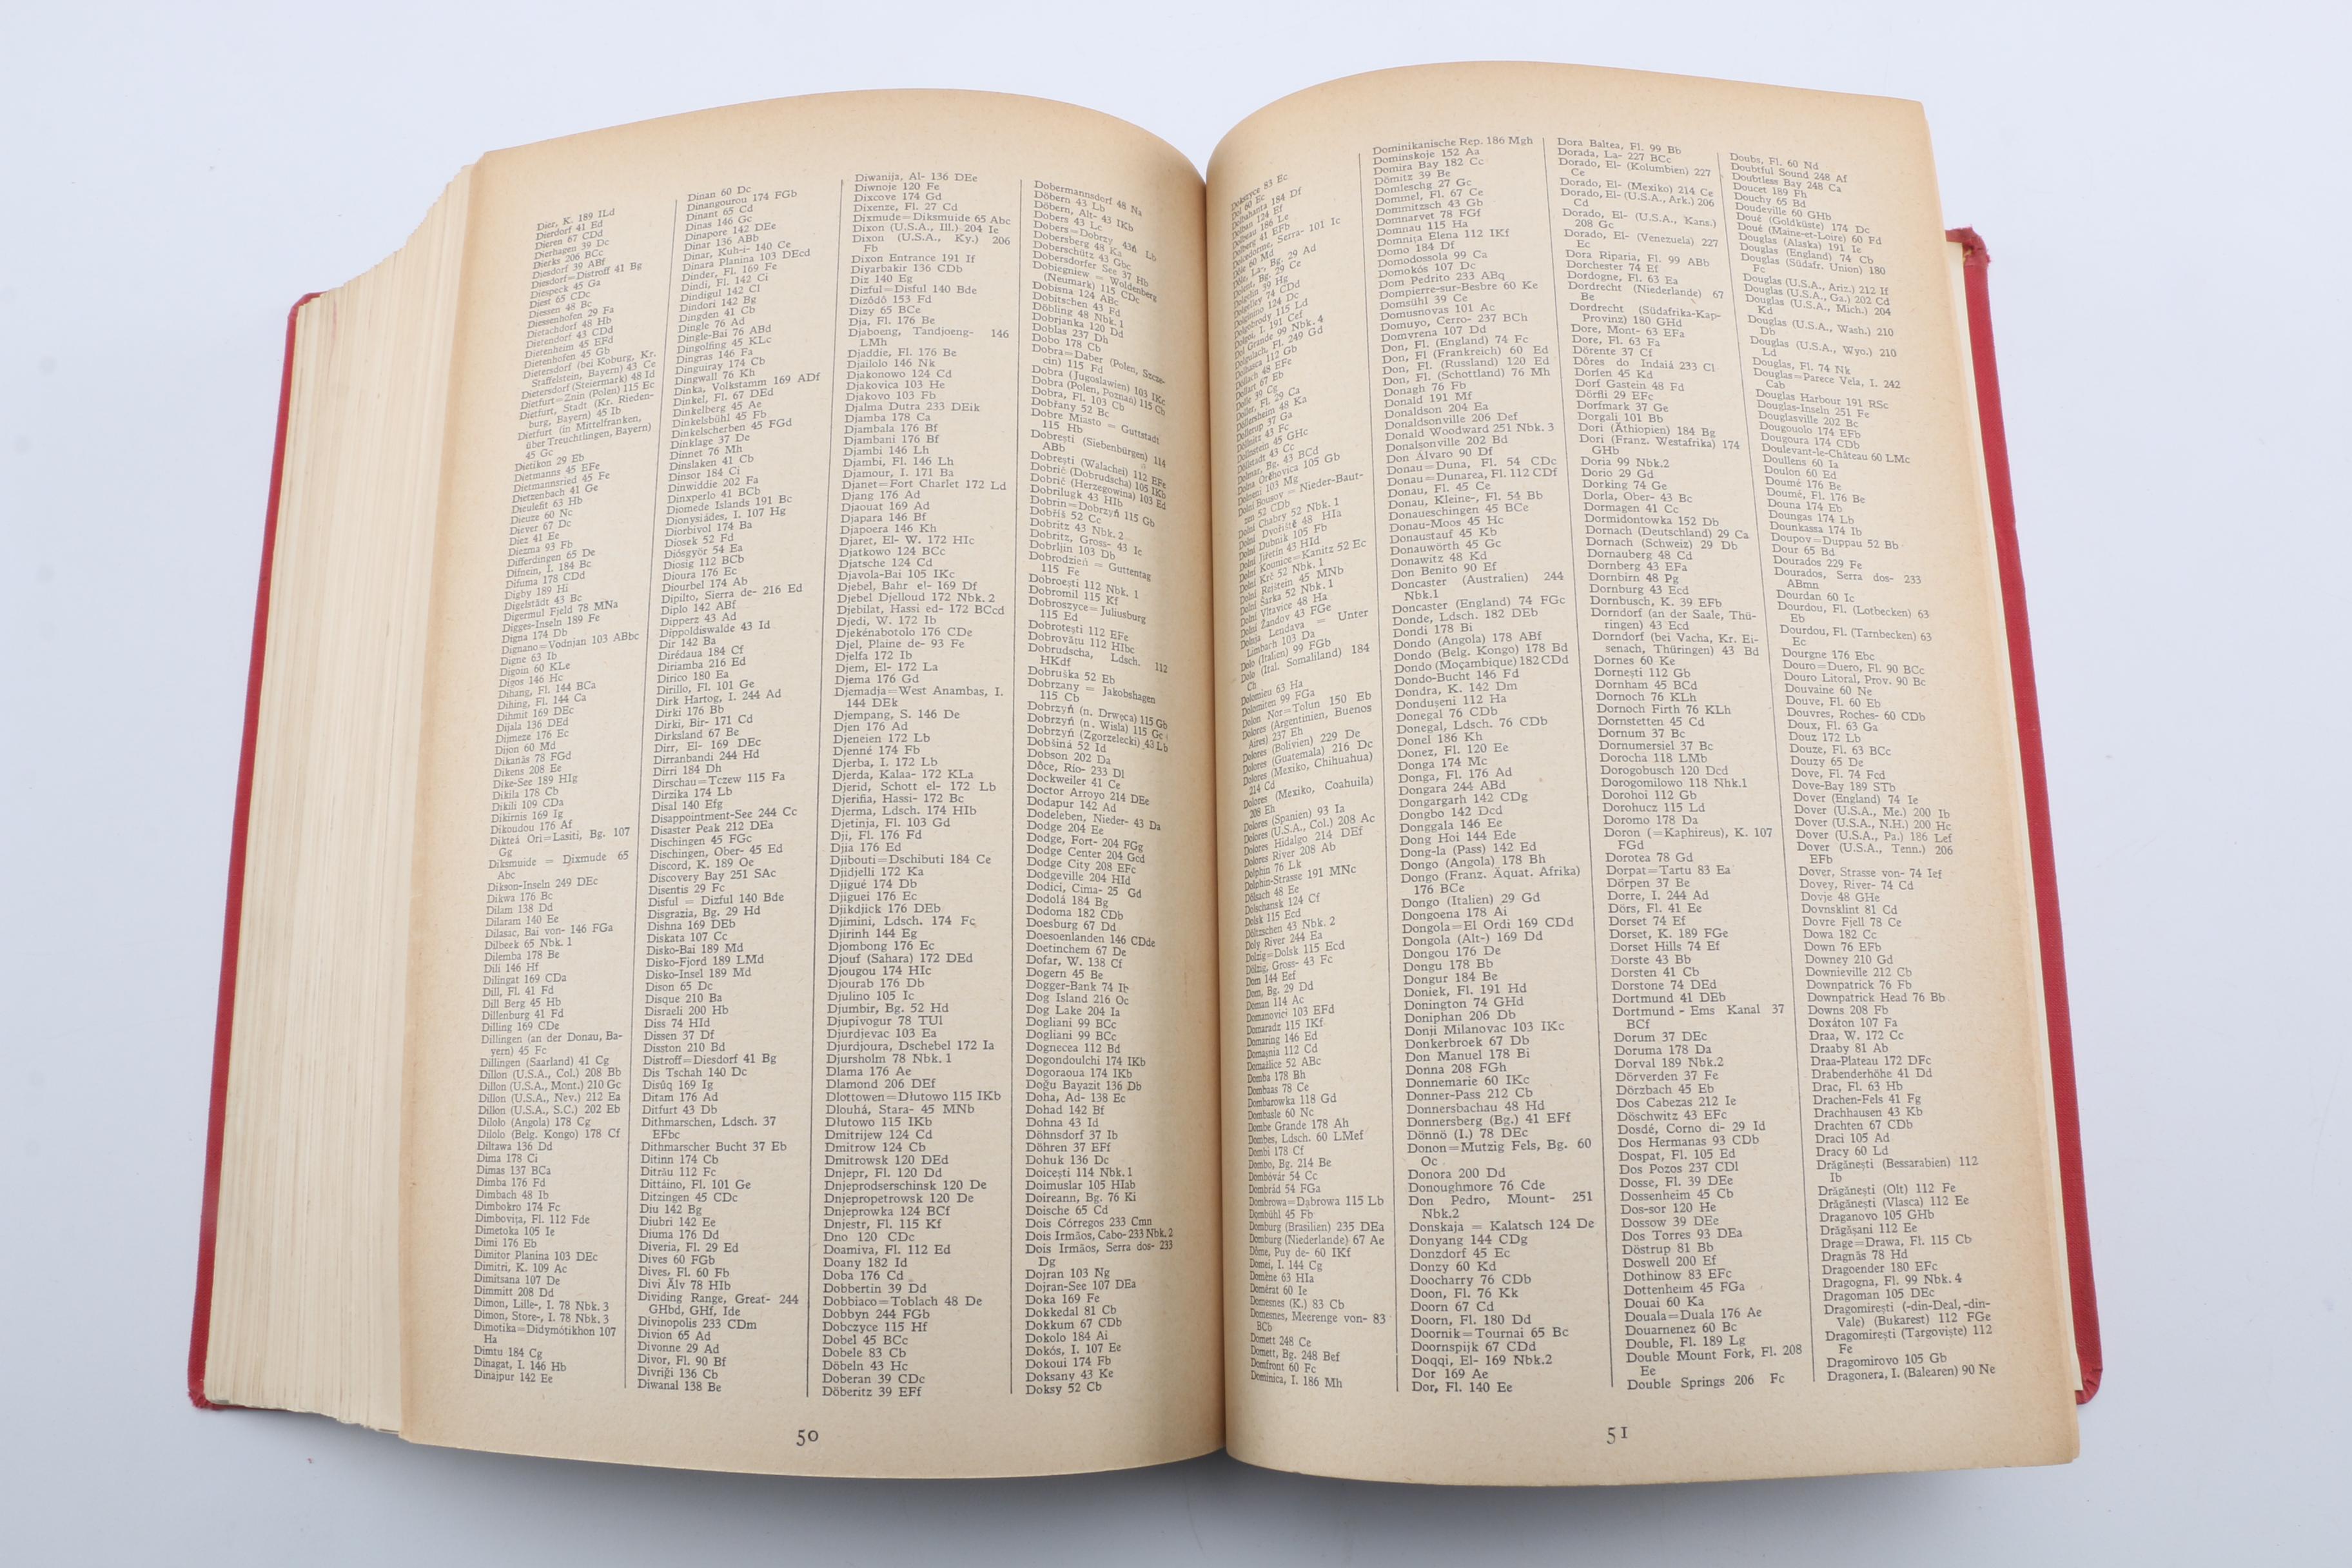 Dier, K. 189 ILd
Dierdorf 41 Ed
Dieren 67 CDd
Dierhagen 39 Dc
Dierks 206 BCc
Diesdorf 39 ABf
Diesdorf=Distroff 41 Bg
Diespeck 45 Ga
Diest 65 CDc
Diessen 48 Bc
Diessenhofen 29 Fa
Dietachdorf 48 Hb
Dietendorf 43 CDd
Dietenheim 45 EFd
Dietenhofen 45 Gb
Dietersdorf (bei Koburg, Kr.
Staffelstein, Bayern) 43 Ce
Dietersdorf (Steiermark) 48 Id
Dietfurt=Znin (Polen) 115 Ec
Dietfurt, Stadt (Kr. Rieden-
burg, Bayern) 45 Ib
Dietfurt (in Mittelfranken,
über Treuchtlingen, Bayern)
45 Gc
Dietikon 29 Eb
Dietmanns 45 EFe
Dietmannsried 45 Fe
Dietzenbach 41 Ge
Dieulefit 63 Hb
Dieuze 60 Nc
Diever 67 Dc
Diez 41 Ee
Diezma 93 Fb
Differdingen 65 De
Difnein, I. 184 Bc
Difuma 178 CDd
Digby 189 Hi
Digelstädt 43 Bc
Digermul Fjeld 78 MNa
Digges-Inseln 189 Fe
Digna 174 Db
Dignano=Vodnjan 103 ABbc
Digne 63 Ib
Digoin 60 KLe
Digos 146 Hc
Dihang, Fl. 144 BCa
Dihing, Fl. 144 Ca
Dihmit 169 DEc
Dijala 136 DEd
Dijmeze 176 Ec
Dijon 60 Md
Dikanäs 78 FGd
Dikens 208 Ee
Dike-See 189 HIg
Dikila 178 Cb
Dikili 109 CDa
Dikirnis 169 Ig
Dikoudou 176 Af
Dikteá Ori=Lasiti, Bg. 107
Gg
Diksmuide = Dixmude 65
Abc
Dikson-Inseln 249 DEc
Dikwa 176 Bc
Dilam 138 Dd
Dilaram 140 Ee
Dilasac, Bai von- 146 FGa
Dilbeek 65 Nbk. 1
Dilemba 178 Be
Dili 146 Hf
Dilingat 169 CDa
Dill, Fl. 41 Fd
Dill Berg 45 Hb
Dillenburg 41 Fd
Dilling 169 CDe
Dillingen (an der Donau, Ba-
yern) 45 Fc
Dillingen (Saarland) 41 Cg
Dillon (U.S.A., Col.) 208 Bb
Dillon (U.S.A., Mont.) 210 Gc
Dillon (U.S.A., Nev.) 212 Ea
Dillon (U.S.A., S.C.) 202 Eb
Dilolo (Angola) 178 Cg
Dilolo (Belg. Kongo) 178 Cf
Diltawa 136 Dd
Dima 178 Ci
Dimas 137 BCa
Dimba 176 Fd
Dimbach 48 Ib
Dimbokro 174 Fc
Dimbovița, Fl. 112 Fde
Dimetoka 105 Ie
Dimi 176 Eb
Dimitor Planina 103 DEc
Dimitri, K. 109 Ac
Dimitsana 107 De
Dimmitt 208 Dd
Dimon, Lille-, I. 78 Nbk. 3
Dimon, Store-, I. 78 Nbk. 3
Dimotika=Didymótikhon 107
Ha
Dimtu 184 Cg
Dinagat, I. 146 Hb
Dinajpur 142 Ee
Dinan 60 Dc
Dinangourou 174 FGb
Dinant 65 Cd
Dinas 146 Gc
Dinapore 142 DEe
Dinar 136 ABb
Dinar, Kuh-i- 140 Ce
Dinara Planina 103 DEcd
Dinder, Fl. 169 Fe
Dindi, Fl. 142 Ci
Dindigul 142 Cl
Dindori 142 Bg
Dingden 41 Cb
Dingle 76 Ad
Dingle-Bai 76 ABd
Dingolfing 45 KLc
Dingras 146 Fa
Dinguiray 174 Cb
Dingwall 76 Kh
Dinka, Volkstamm 169 ADf
Dinkel, Fl. 67 DEd
Dinkelberg 45 Ae
Dinkelsbühl 45 Fb
Dinkelscherben 45 FGd
Dinklage 37 De
Dinnet 76 Mh
Dinslaken 41 Cb
Dinsor 184 Ci
Dinwiddie 202 Fa
Dinxperlo 41 BCb
Diomede Islands 191 Bc
Dionysiádes, I. 107 Hg
Diorbivol 174 Ba
Diosek 52 Fd
Diósgyör 54 Ea
Diosig 112 BCb
Dioura 176 Ec
Diourbel 174 Ab
Dipilto, Sierra de- 216 Ed
Diplo 142 ABf
Dipperz 43 Ad
Dippoldiswalde 43 Id
Dir 142 Ba
Dirédaua 184 Cf
Diriamba 216 Ed
Dirico 180 Ea
Dirillo, Fl. 101 Ge
Dirk Hartog, I. 244 Ad
Dirki 176 Bb
Dirki, Bir- 171 Cd
Dirksland 67 Be
Dirr, El- 169 DEc
Dirranbandi 244 Hd
Dirri 184 Dh
Dirschau=Tczew 115 Fa
Dirzika 174 Lb
Disal 140 Efg
Disappointment-See 244 Cc
Disaster Peak 212 DEa
Dischingen 45 FGc
Dischingen, Ober- 45 Ed
Discord, K. 189 Oe
Discovery Bay 251 SAc
Disentis 29 Fc
Disful = Dizful 140 Bde
Disgrazia, Bg. 29 Hd
Dishna 169 DEb
Diskata 107 Cc
Disko-Bai 189 Md
Disko-Fjord 189 LMd
Disko-Insel 189 Md
Dison 65 Dc
Disque 210 Ba
Disraeli 200 Hb
Diss 74 HId
Dissen 37 Df
Disston 210 Bd
Distroff=Diesdorf 41 Bg
Dis Tschah 140 Dc
Disûq 169 Ig
Ditam 176 Ad
Ditfurt 43 Db
Dithmarschen, Ldsch. 37
EFbc
Dithmarscher Bucht 37 Eb
Ditinn 174 Cb
Ditrău 112 Fc
Dittáino, Fl. 101 Ge
Ditzingen 45 CDc
Diu 142 Bg
Diubri 142 Ee
Diuma 176 Dd
Diveria, Fl. 29 Ed
Dives 60 FGb
Dives, Fl. 60 Fb
Divi Älv 78 HIb
Dividing Range, Great- 244
GHbd, GHf, Ide
Divinopolis 233 CDm
Divion 65 Ad
Divonne 29 Ad
Divor, Fl. 90 Bf
Divriği 136 Cb
Diwanal 138 Be
Diwanija, Al- 136 DEe
Diwnoje 120 Fe
Dixcove 174 Gd
Dixenze, Fl. 27 Cd
Dixmude=Diksmuide 65 Abc
Dixon (U.S.A., Ill.) 204 Ie
Dixon (U.S.A., Ky.) 206
Fb
Dixon Entrance 191 If
Diyarbakir 136 CDb
Diz 140 Eg
Dizful=Disful 140 Bde
Dizôdô 153 Fd
Dizy 65 BCe
Dja, Fl. 176 Be
Djaboeng, Tandjoeng- 146
LMh
Djaddie, Fl. 176 Be
Djailolo 146 Nk
Djakonowo 124 Cd
Djakovica 103 He
Djakovo 103 Fb
Djalma Dutra 233 DEik
Djamba 178 Ca
Djambala 176 Bf
Djambani 176 Bf
Djambi 146 Lh
Djambi, Fl. 146 Lh
Djamour, I. 171 Ba
Djanet=Fort Charlet 172 Ld
Djang 176 Ad
Djaouat 169 Ad
Djapara 146 Bf
Djapoera 146 Kh
Djaret, El- W. 172 HIc
Djatkowo 124 BCc
Djatsche 124 Cd
Djavola-Bai 105 IKc
Djebel, Bahr el- 169 Df
Djebel Djelloud 172 Nbk. 2
Djebilat, Hassi ed- 172 BCcd
Djedi, W. 172 Ib
Djekénabotolo 176 CDe
Djel, Plaine de- 93 Fe
Djelfa 172 Ib
Djem, El- 172 La
Djema 176 Gd
Djemadja=West Anambas, I.
144 DEk
Djempang, S. 146 De
Djen 176 Ad
Djeneien 172 Lb
Djenné 174 Fb
Djerba, I. 172 Lb
Djerda, Kalaa- 172 KLa
Djerid, Schott el- 172 Lb
Djerifia, Hassi- 172 Bc
Djerma, Ldsch. 174 HIb
Djetinja, Fl. 103 Gd
Dji, Fl. 176 Fd
Djia 176 Ed
Djibouti=Dschibuti 184 Ce
Djidjelli 172 Ka
Djigué 174 Db
Djiguei 176 Ec
Djikdjick 176 DEb
Djimini, Ldsch. 174 Fc
Djirinh 144 Eg
Djombong 176 Ec
Djouf (Sahara) 172 DEd
Djougou 174 HIc
Djourab 176 Db
Djulino 105 Ic
Djumbir, Bg. 52 Hd
Djupivogur 78 TUl
Djurdjevac 103 Ea
Djurdjoura, Dschebel 172 Ia
Djursholm 78 Nbk. 1
Dlama 176 Ae
Dlamond 206 DEf
Dlottowen=Dłutowo 115 IKb
Dlouhá, Stara- 45 MNb
Dłutowo 115 IKb
Dmitrijew 124 Cd
Dmitrow 124 Cb
Dmitrowsk 120 DEd
Dnjepr, Fl. 120 Dd
Dnjeprodserschinsk 120 De
Dnjepropetrowsk 120 De
Dnjeprowka 124 BCf
Dnjestr, Fl. 115 Kf
Dno 120 CDc
Doamiva, Fl. 112 Ed
Doany 182 Id
Doba 176 Cd
Dobbertin 39 Dd
Dobbiaco=Toblach 48 De
Dobbyn 244 FGb
Dobczyce 115 Hf
Dobel 45 BCc
Dobele 83 Cb
Döbeln 43 Hc
Doberan 39 CDc
Döberitz 39 EFf
Dobermannsdorf 48 Na
Döbern 43 Lb
Döbern, Alt- 43 IKb
Dobers 43 Lc
Dobers=Dobrzy 43ñ Lb
Dobersberg 48 Ka
Doberschütz 43 Gbc
Dobersdorfer See 37 Hb
Dobiegniew = Woldenberg
(Neumark) 115 CDc
Dobisna 124 ABc
Dobitschen 43 Fd
Döbling 48 Nbk. 1
Dobrjanka 120 Dd
Doblas 237 Dh
Dobo 178 Cb
Dobra=Daber (Polen, Szcze-
cin) 115 Fd
Dobra (Jugoslawien) 103 IKc
Dobra (Polen, Poznań) 115 Cb
Dobra, Fl. 103 Cb
Dobřany 52 Bc
Dobre Miasto = Guttstadt
115 Hb
Dobrești (Siebenbürgen) 114
ABb
Dobrești (Walachei) 112 EFe
Dobrič (Dobrudscha) 105 IKb
Dobrič (Herzegowina) 103 Ed
Dobrilugk 43 HIb
Dobrin=Dobrzyń 115 Gb
Dobříš 52 Cc
Dobritz 43 Nbk. 2
Dobritz, Gross- 43 Ic
Dobrljin 103 Db
Dobrodzień = Guttentag
115 Fe
Dobroești 112 Nbk. 1
Dobromil 115 Kf
Dobroszyce=Juliusburg
115 Ed
Dobrotești 112 EFe
Dobrovătu 112 HIbc
Dobrudscha, Ldsch. 112
HKdf
Dobruška 52 Eb
Dobrzany = Jakobshagen
115 Cb
Dobrzyń (n. Drwęca) 115 Gb
Dobrzyń (n. Wisla) 115 Gc
Dobrzyń (Zgorzelecki) 43 Lb
Dobšiná 52 Id
Dobson 202 Da
Dôce, Rio- 233 Dl
Dockweiler 41 Ce
Doctor Arroyo 214 DEe
Dodapur 142 Ad
Dodeleben, Nieder- 43 Da
Dodge 204 Ee
Dodge, Fort- 204 FGg
Dodge Center 204 Gcd
Dodge City 208 EFc
Dodgeville 204 HId
Dodici, Cima- 25 Gd
Dodolá 184 Bg
Dodoma 182 CDb
Doesburg 67 Dd
Doesoenlanden 146 CDde
Doetinchem 67 De
Dofar, W. 138 Cf
Dogern 45 Be
Dogger-Bank 74 Ib
Dog Island 216 Oc
Dog Lake 204 Ia
Dogliani 99 BCc
Dogliani 99 BCc
Dognecea 112 Bd
Dogondoulchi 174 IKb
Dogoraoua 174 IKb
Doğu Bayazit 136 Db
Doha, Ad- 138 Ec
Dohad 142 Bf
Dohna 43 Id
Döhnsdorf 37 Ib
Döhren 37 EFf
Dohuk 136 Dc
Doicești 114 Nbk. 1
Doimuslar 105 HIab
Doireann, Bg. 76 Ki
Doische 65 Cd
Dois Córregos 233 Cmn
Dois Irmãos, Cabo- 233 Nbk. 2
Dois Irmãos, Serra dos- 233
Dg
Dojran 103 Ng
Dojran-See 107 DEa
Doka 169 Fe
Dokkedal 81 Cb
Dokkum 67 CDb
Dokolo 184 Ai
Dokós, I. 107 Ee
Dokoui 174 Fb
Doksany 43 Ke
Doksy 52 Cb
50
Dokszyce 83 Ec
Dol 60 Ec
Dolbahanta 184 Df
Dolban 124 Ef
Dolbeau 186 Le
Dolberg 41 EFb
Dolcedorme, Serra- 101 Ic
Dôle 60 Md
Dôle, La-, Bg. 29 Ad
Dolent, Bg. 29 Ce
Dolgelin 39 Hg
Dolgelley 74 CDd
Dolginino 124 Dc
Dolgobrody 115 Ld
Dolgoi, I. 191 Cef
Dol Grande 99 Nbk. 4
Dolgulach, Fl. 249 Gd
Dolhasca 112 Gb
Döllach 48 EFe
Dollart 67 Eb
Dolle 39 Cg
Doller, Fl. 29 Ca
Döllersheim 48 Ka
Dollerup 37 Ga
Döllnitz 43 Fc
Dollnstein 45 GHc
Döllstädt 43 Cc
Dolmar, Bg. 43 BCd
Dolna Orěhovica 105 Gb
Dolneni 103 Mg
Dolní Bousov = Nieder-Baut-
zen 52 CDb
Dolní Chabry 52 Nbk. 1
Dolní Dvořiště 48 HIa
Dolni Dubnik 105 Fb
Dolní Jiřetín 43 HId
Dolní Kounice=Kanitz 52 Ec
Dolní Krč 52 Nbk. 1
Dolní Rejstein 45 MNb
Dolní Šárka 52 Nbk. 1
Dolní Vltavice 48 Ha
Dolní Žandov 43 FGe
Dolnia Lendava = Unter
Limbach 103 Da
Dolo (Italien) 99 FGb
Dolo (Ital. Somaliland) 184
Ch
Dolomieu 63 Ha
Dolomiten 99 FGa
Dolon Nor=Tolun 150 Eb
Dolores (Argentinien, Buenos
Aires) 237 Eh
Dolores (Bolivien) 229 De
Dolores (Guatemala) 216 Dc
Dolores (Mexiko, Chihuahua)
214 Cd
Dolores (Mexiko, Coahuila)
208 Eh
Dolores (Spanien) 93 Ia
Dolores (U.S.A., Col.) 208 Ac
Dolores Hidalgo 214 DEf
Dolores River 208 Ab
Dolphin 76 Lk
Dolphin-Strasse 191 MNc
Dölsach 48 Ee
Dolschansk 124 Cf
Dolsk 115 Ecd
Döltzschen 43 Nbk. 2
Doly River 244 Ea
Dolzig=Dolsk 115 Ecd
Dölzig, Gross- 43 Fc
Dom 144 Eef
Dom, Bg. 29 Dd
Doman 114 Ac
Domanovici 103 EFd
Domaradz 115 IKf
Domaring 146 Ed
Domașnia 112 Cd
Domažlice 52 ABc
Domba 178 Bh
Dombaas 78 Ce
Dombarowka 118 Gd
Dombasle 60 Nc
Dombe Grande 178 Ah
Dombes, Ldsch. 60 LMef
Dombi 178 Cf
Dombo, Bg. 214 Be
Dombóvár 54 Cc
Dombrád 54 FGa
Dombrowa=Dąbrowa 115 Lb
Dombühl 45 Fb
Domburg (Brasilien) 235 DEa
Domburg (Niederlande) 67 Ae
Dôme, Puy de- 60 IKf
Domei, I. 144 Cg
Domène 63 HIa
Domérat 60 Ie
Domesnes (K.) 83 Cb
Domesnes, Meerenge von- 83
BCb
Domett 248 Ce
Domett, Bg. 248 Bef
Domfront 60 Fc
Dominica, I. 186 Mh
Dominikanische Rep. 186 Mgh
Dominskoje 152 Aa
Domira Bay 182 Cc
Dömitz 39 Be
Domleschg 27 Gc
Dommel, Fl. 67 Ce
Dommitzsch 43 Gb
Domnarvet 78 FGf
Domnau 115 Ha
Domnița Elena 112 IKf
Domo 184 Df
Domodossola 99 Ca
Domokós 107 Dc
Dom Pedrito 233 ABq
Dompierre-sur-Besbre 60 Ke
Domsühl 39 Ce
Domusnovas 101 Ac
Domuyo, Cerro- 237 BCh
Domvrena 107 Dd
Don, Fl. (England) 74 Fc
Don, Fl (Frankreich) 60 Ed
Don, Fl. (Russland) 120 Ed
Don, Fl. (Schottland) 76 Mh
Donagh 76 Fb
Donald 191 Mf
Donaldson 204 Ea
Donaldsonville 206 Def
Donald Woodward 251 Nbk. 3
Donalsonville 202 Bd
Don Álvaro 90 Df
Donau=Duna, Fl. 54 CDc
Donau=Dunarea, Fl. 112 CDf
Donau, Fl. 45 Ce
Donau, Kleine-, Fl. 54 Bb
Donaueschingen 45 BCe
Donau-Moos 45 Hc
Donaustauf 45 Kb
Donauwörth 45 Gc
Donawitz 48 Kd
Don Benito 90 Ef
Doncaster (Australien) 244
Nbk.1
Doncaster (England) 74 FGc
Donde, Ldsch. 182 DEb
Dondi 178 Bi
Dondo (Angola) 178 ABf
Dondo (Belg. Kongo) 178 Bd
Dondo (Moçambique) 182 CDd
Dondo-Bucht 146 Fd
Dondra, K. 142 Dm
Dondușeni 112 Ha
Donegal 76 CDb
Donegal, Ldsch. 76 CDb
Donel 186 Kh
Donez, Fl. 120 Ee
Donga 174 Mc
Donga, Fl. 176 Ad
Dongara 244 ABd
Dongargarh 142 CDg
Dongbo 142 Dcd
Donggala 146 Ee
Dong Hoi 144 Ede
Dong-la (Pass) 142 Ed
Dongo (Angola) 178 Bh
Dongo (Franz. Äquat. Afrika)
176 BCe
Dongo (Italien) 29 Gd
Dongoena 178 Ai
Dongola=El Ordi 169 CDd
Dongola (Alt-) 169 Dd
Dongou 176 De
Dongu 178 Bb
Dongur 184 Be
Doniek, Fl. 191 Hd
Donington 74 GHd
Doniphan 206 Db
Donji Milanovac 103 IKc
Donkerbroek 67 Db
Don Manuel 178 Bi
Donna 208 FGh
Donnemarie 60 IKc
Donner-Pass 212 Cb
Donnersbachau 48 Hd
Donnersberg (Bg.) 41 EFf
Dönnö (I.) 78 DEc
Donon=Mutzig Fels, Bg. 60
Oc
Donora 200 Dd
Donoughmore 76 Cde
Don Pedro, Mount- 251
Nbk.2
Donskaja = Kalatsch 124 De
Donyang 144 CDg
Donzdorf 45 Ec
Donzy 60 Kd
Doocharry 76 CDb
Doon, Fl. 76 Kk
Doorn 67 Cd
Doorn, Fl. 180 Dd
Doornik=Tournai 65 Bc
Doornspijk 67 CDd
Doqqi, El- 169 Nbk.2
Dor 169 Ae
Dor, Fl. 140 Ee
Dora Baltea, Fl. 99 Bb
Dorada, La- 227 BCc
Dorado, El- (Kolumbien) 227
Ce
Dorado, El- (Mexiko) 214 Ce
Dorado, El- (U.S.A., Ark.) 206
Cd
Dorado, El- (U.S.A., Kans.)
208 Gc
Dorado, El- (Venezuela) 227
Ec
Dora Riparia, Fl. 99 ABb
Dorchester 74 Ef
Dordogne, Fl. 63 Ea
Dordrecht (Niederlande) 67
Be
Dordrecht (Südafrika-Kap-
Provinz) 180 GHd
Dore, Mont- 63 EFa
Dore, Fl. 63 Fa
Dörente 37 Cf
Dôres do Indaiá 233 Cl
Dorfen 45 Kd
Dorf Gastein 48 Fd
Dörfli 29 EFc
Dorfmark 37 Ge
Dorgali 101 Bb
Dori (Äthiopien) 184 Bg
Dori (Franz. Westafrika) 174
GHb
Doria 99 Nbk.2
Dorio 29 Gd
Dorking 74 Ge
Dorla, Ober- 43 Bc
Dormagen 41 Cc
Dormidontowka 152 Db
Dornach (Deutschland) 29 Ca
Dornach (Schweiz) 29 Db
Dornauberg 48 Cd
Dornberg 43 EFa
Dornbirn 48 Pg
Dornburg 43 Ecd
Dornbusch, K. 39 EFb
Dorndorf (an der Saale, Thü-
ringen) 43 Ecd
Dorndorf (bei Vacha, Kr. Ei-
senach, Thüringen) 43 Bd
Dornes 60 Ke
Dornești 112 Gb
Dornham 45 BCd
Dornoch 76 KLh
Dornoch Firth 76 KLh
Dornstetten 45 Cd
Dornum 37 Bc
Dornumersiel 37 Bc
Dorocha 118 LMb
Dorogobusch 120 Dcd
Dorogomilowo 118 Nhk.1
Dorohoi 112 Gb
Dorohucz 115 Ld
Doromo 178 Da
Doron (=Kaphireus), K. 107
FGd
Dorotea 78 Gd
Dorpat=Tartu 83 Ea
Dörpen 37 Be
Dorre, I. 244 Ad
Dörs, Fl. 41 Ee
Dorset 74 Ef
Dorset, K. 189 FGe
Dorset Hills 74 Ef
Dorste 43 Bb
Dorsten 41 Cb
Dorstone 74 DEd
Dortmund 41 DEb
Dortmund - Ems Kanal 37
BCf
Dorum 37 DEc
Doruma 178 Da
Dorval 189 Nbk.2
Dörverden 37 Fe
Dörzbach 45 Eb
Dos Cabezas 212 Ie
Döschwitz 43 EFc
Dosdé, Corno di- 29 Id
Dos Hermanas 93 CDb
Dospat, Fl. 105 Ed
Dos Pozos 237 CDl
Dosse, Fl. 39 DEe
Dossenheim 45 Cb
Dos-sor 120 He
Dossow 39 DEe
Dos Torres 93 DEa
Döstrup 81 Bb
Doswell 200 Ef
Dothinow 83 EFc
Dottenheim 45 FGa
Douai 60 Ka
Douala=Duala 176 Ae
Douarnenez 60 Bc
Double, Fl. 189 Lg
Double Mount Fork, Fl. 208
Ee
Double Springs 206 Fc
Doubs, Fl. 60 Nd
Doubtful Sound 248 Af
Doubtless Bay 248 Ca
Doucet 189 Fh
Douchy 65 Bd
Doudeville 60 GHb
Doué (Goldküste) 174 Dc
Doué (Maine-et-Loire) 60 Fd
Douglas (Alaska) 191 Ie
Douglas (England) 74 Cb
Douglas (Südafr. Union) 180
Fc
Douglas (U.S.A., Ariz.) 212 If
Douglas (U.S.A., Ga.) 202 Cd
Douglas (U.S.A., Mich.) 204
Kd
Douglas (U.S.A., Wash.) 210
Db
Douglas (U.S.A., Wyo.) 210
Ld
Douglas, Fl. 74 Nk
Douglas=Parece Vela, I. 242
Cab
Douglas Harbour 191 RSc
Douglas-Inseln 251 Fe
Douglasville 202 Bc
Dougouolo 174 EFb
Dougoura 174 CDb
Doulevant-le-Château 60 LMc
Doullens 60 Ia
Doulon 60 Ed
Doumé 176 Be
Doumé, Fl. 176 Be
Douna 174 Eb
Doungas 174 Lb
Dounkassa 174 Ib
Doupov=Duppau 52 Bb
Dour 65 Bd
Dourados 229 Fe
Dourados, Serra dos- 233
ABmn
Dourdan 60 Ic
Dourdou, Fl. (Lotbecken) 63
Eb
Dourdou, Fl. (Tarnbecken) 63
Ec
Dourgne 176 Ebc
Douro=Duero, Fl. 90 BCc
Douro Litoral, Prov. 90 Bc
Douvaine 60 Ne
Douve, Fl. 60 Eb
Douvres, Roches- 60 CDb
Doux, Fl. 63 Ga
Douz 172 Lb
Douze, Fl. 63 BCc
Douzy 65 De
Dove, Fl. 74 Fcd
Dove-Bay 189 STb
Dover (England) 74 Ie
Dover (U.S.A., Me.) 200 Ib
Dover (U.S.A., N.H.) 200 Hc
Dover (U.S.A., Pa.) 186 Lef
Dover (U.S.A., Tenn.) 206
EFb
Dover, Strasse von- 74 Ief
Dovey, River- 74 Cd
Dovje 48 GHe
Dovnsklint 81 Cd
Dovre Fjell 78 Ce
Dowa 182 Cc
Down 76 EFb
Downey 210 Gd
Downieville 212 Cb
Downpatrick 76 Fb
Downpatrick Head 76 Bb
Downs 208 Fb
Doxáton 107 Fa
Draa, W. 172 Cc
Draaby 81 Ab
Draa-Plateau 172 DFc
Drabenderhöhe 41 Dd
Drac, Fl. 63 Hb
Drachen-Fels 41 Fg
Drachhausen 43 Kb
Drachten 67 CDb
Draci 105 Ad
Dracy 60 Ld
Drăgănești (Bessarabien) 112
Ib
Drăgănești (Olt) 112 Fe
Drăgănești (Vlasca) 112 Ee
Draganovo 105 GHb
Drăgășani 112 Ee
Drage=Drawa, Fl. 115 Cb
Dragnäs 78 Hd
Dragoender 180 EFc
Dragogna, Fl. 99 Nbk. 4
Dragoman 105 DEc
Dragomirești (-din-Deal, -din-
Vale) (Bukarest) 112 FGe
Dragomirești (Targoviște) 112
Fe
Dragomirovo 105 Gb
Dragonera, I. (Balearen) 90 Ne
51